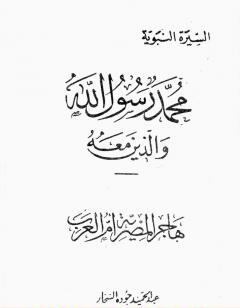 السيرة النبوية
محمد رسول الله
والذين معه
هاجر المصرية أم العرب
عبد الحميد جوده السحار